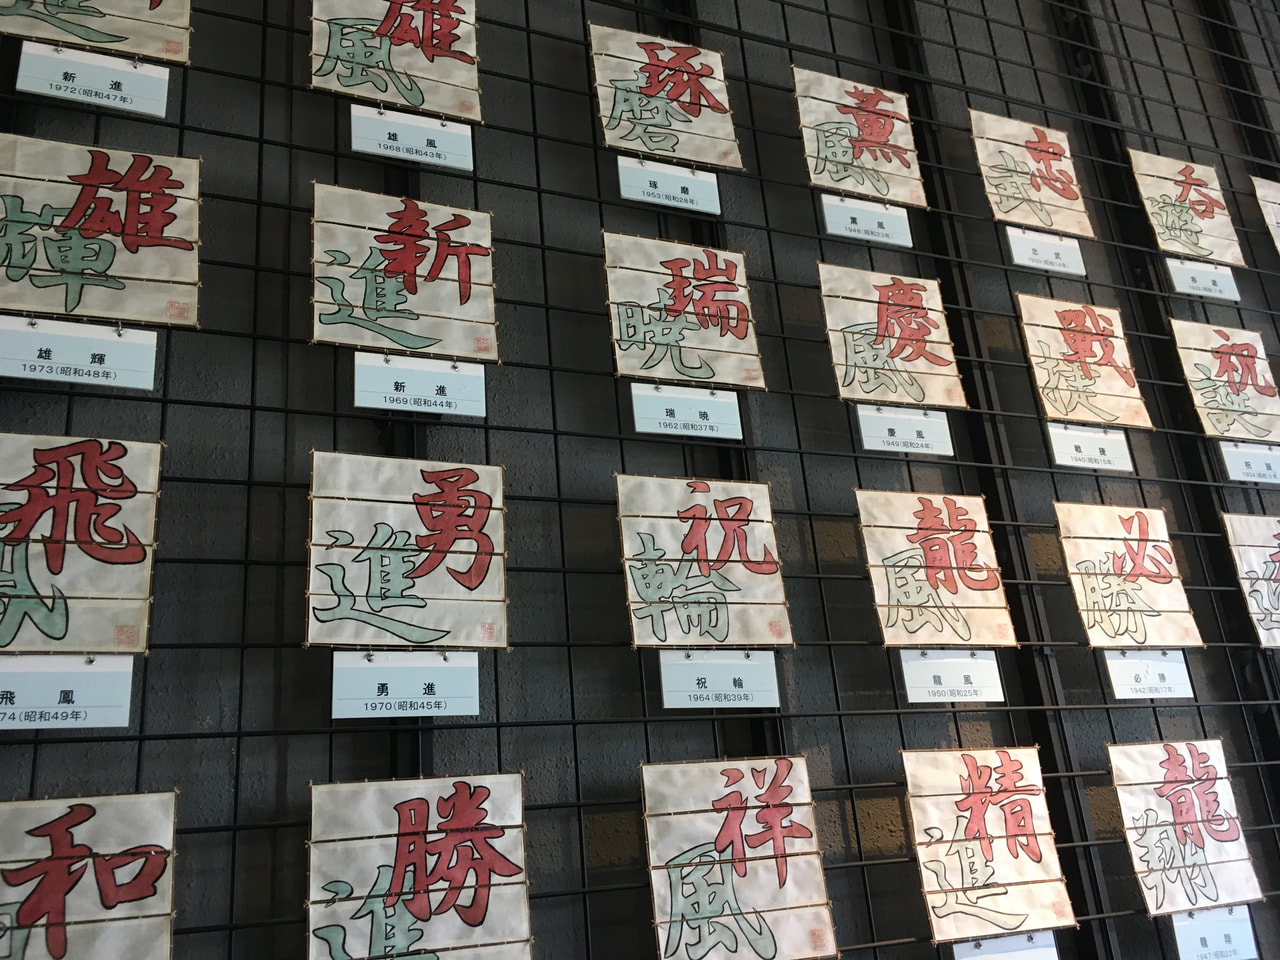 新進
1972(昭和47年)
雄風
雄風
1968(昭和43年)
琢磨
琢磨
1953(昭和28年)
薫風
薫風
1948(昭和23年)
忠武
忠武
呑遊
雄輝
雄輝
1973(昭和48年)
新進
新進
1969(昭和44年)
瑞暁
瑞暁
1962(昭和37年)
慶風
慶風
1949(昭和24年)
戦捷
戦捷
1940(昭和15年)
祝誕
飛
飛鳳
74(昭和49年)
勇進
勇進
1970(昭和45年)
祝輪
祝輪
1964(昭和39年)
龍風
龍風
1950(昭和25年)
必勝
必勝
1942(昭和17年)
和
勝進
祥風
精進
龍翔
龍翔